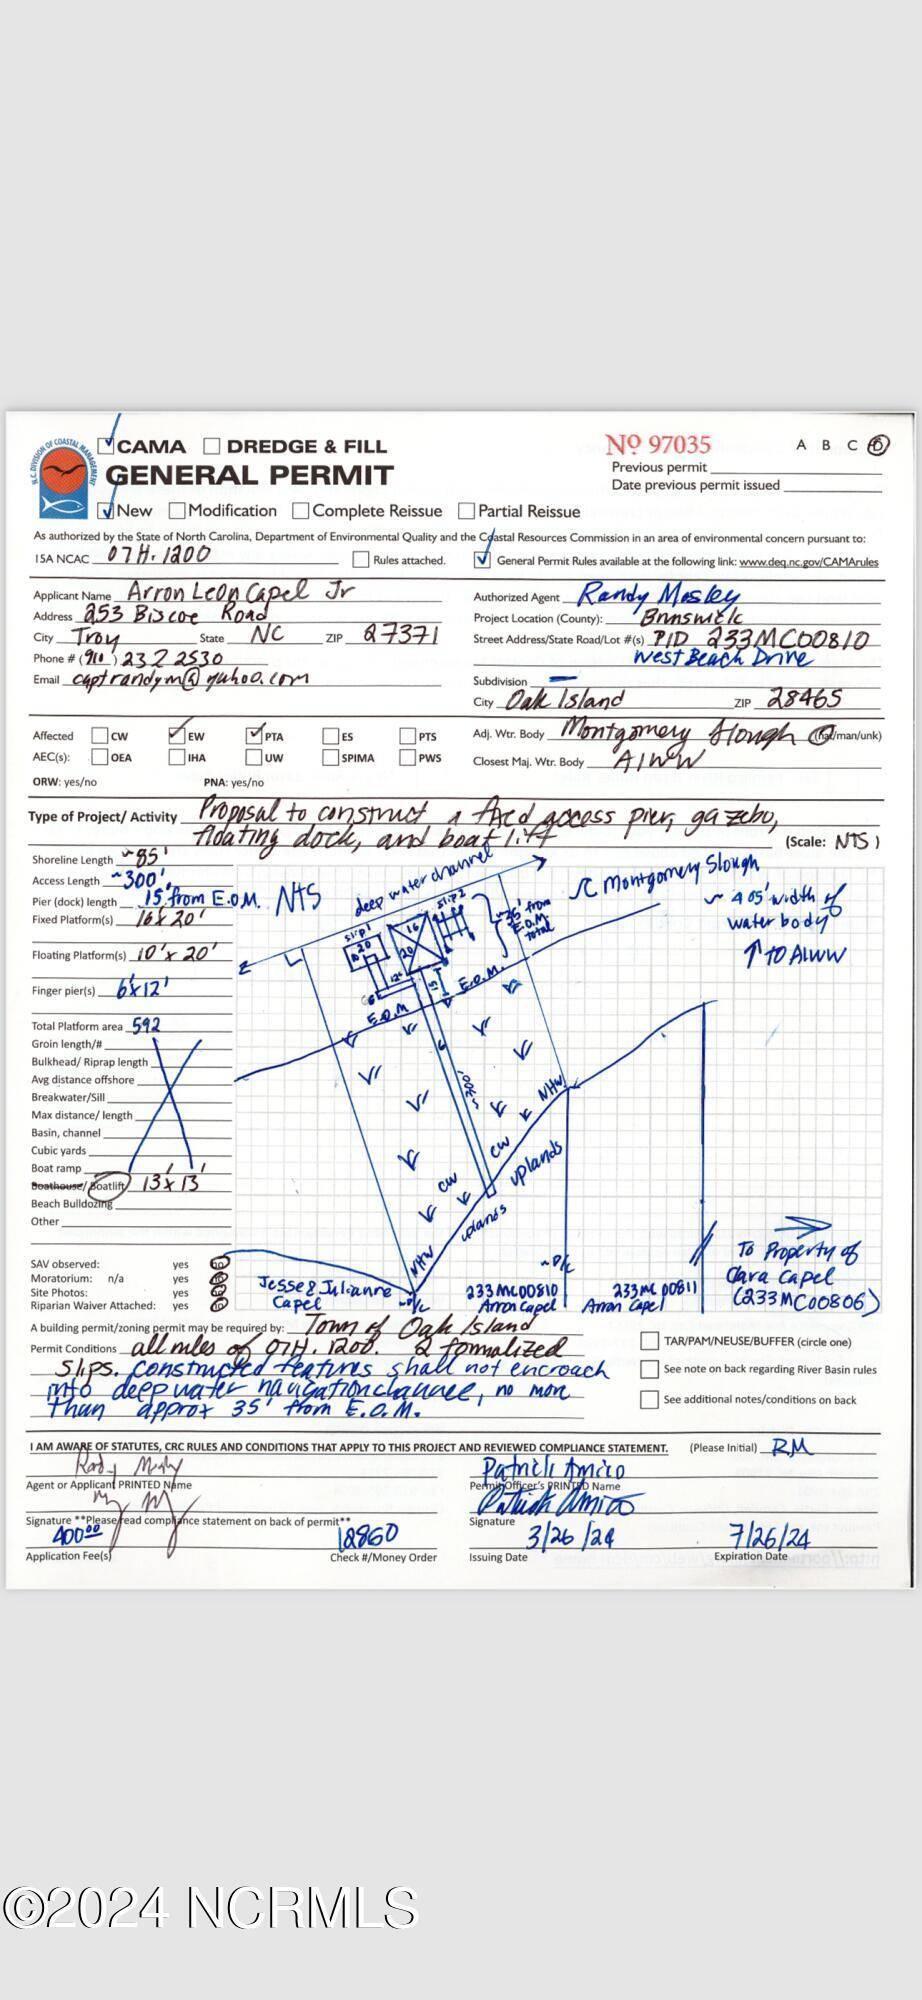 N.C. DIVISION OF COASTAL MANAGEMENT
CAMA DREDGE & FILL
GENERAL PERMIT
Nº 97035
A B C D
Previous permit
Date previous permit issued
New Modification Complete Reissue Partial Reissue
As authorized by the State of North Carolina, Department of Environmental Quality and the Coastal Resources Commission in an area of environmental concern pursuant to:
15A NCAC 07H.1200 Rules attached. General Permit Rules available at the following link: www.deq.nc.gov/CAMArules
Applicant Name Arron Leon Capel Jr
Address 253 Biscoe Road
City Troy State NC ZIP 27371
Phone # (910) 232 2530
Email captrandym@yahoo.com
Authorized Agent Randy Mosley
Project Location (County): Brunswick
Street Address/State Road/Lot #(s) PID 233MC00810
West Beach Drive
Subdivision —
City Oak Island ZIP 28465
Affected CW EW PTA ES PTS
AEC(s): OEA IHA UW SPIMA PWS
ORW: yes/no PNA: yes/no
Adj. Wtr. Body Montgomery Slough (nat/man/unk)
Closest Maj. Wtr. Body AIWW
Type of Project/ Activity Proposal to construct a fixed access pier, gazebo,
floating dock, and boat lift (Scale: NTS)
Shoreline Length ~85'
Access Length ~300'
Pier (dock) length 15' from E.O.M.
Fixed Platform(s) 16'x20'
Floating Platform(s) 10'x20'
Finger pier(s) 6'x12'
Total Platform area 592
Groin length/#
Bulkhead/ Riprap length
Avg distance offshore
Breakwater/Sill
Max distance/ length
Basin, channel
Cubic yards
Boat ramp
Boathouse/ Boatlift 13'x13'
Beach Bulldozing
Other
SAV observed: yes
Moratorium: n/a yes
Site Photos: yes
Riparian Waiver Attached: yes
NTS
deep water channel
Montgomery Slough
~405' width of
water body
↑ TO AIWW
slip 1
slip 2
20
16
20
12'
6
15'
~35' from
E.O.M.
total
E.O.M.
E.O.M
6
~300'
NHW
CW
uplands
CW
uplands
NHW
Jesse & Julianne
Capel
~P/L
~P/L
233MC00810
Arron Capel
233MC00811
Arron Capel
To Property of
Clara Capel
(233MC00806)
A building permit/zoning permit may be required by: Town of Oak Island
Permit Conditions all rules of 07H.1200. 2 formalized
slips. Constructed features shall not encroach
into deep water navigation channel, no more
than approx 35' from E.O.M.
TAR/PAM/NEUSE/BUFFER (circle one)
See note on back regarding River Basin rules
See additional notes/conditions on back
I AM AWARE OF STATUTES, CRC RULES AND CONDITIONS THAT APPLY TO THIS PROJECT AND REVIEWED COMPLIANCE STATEMENT. (Please Initial) RM
Randy Mosley
Agent or Applicant PRINTED Name
Patrick Amico
Permit Officer's PRINTED Name
Signature **Please read compliance statement on back of permit**
Patrick Amico
Signature
400.00
Application Fee(s)
12860
Check #/Money Order
3/26/24
Issuing Date
7/26/24
Expiration Date
©2024 NCRMLS